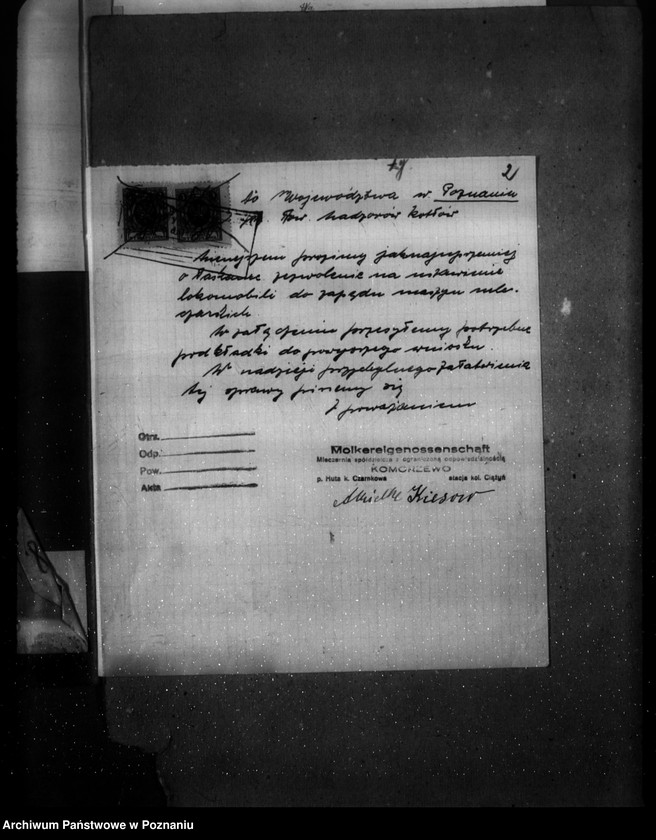 2
Do Województwa w Poznaniu
Tow. Nadzorów Kotłów
Niniejszem prosimy jaknajuprzejmiej
o łaskawe zezwolenie na ustawienie
lokomobili do zapędu maszyn mle-
czarskich
W załączeniu przesyłamy potrzebne
podkładki do powyższego wniosku.
W nadzieji przychylnego załatwienia
tej sprawy piszemy się
Z poważaniem
Otrz.
Odp.
Pow.
Akta
Molkereigenossenschaft
Mleczarnia spółdzielcza z ograniczoną odpowiedzialnością
KOMORZEWO
p. Huta k. Czarnkowa stacja kol. Ciążyń
Kiesow
Archiwum Państwowe w Poznaniu